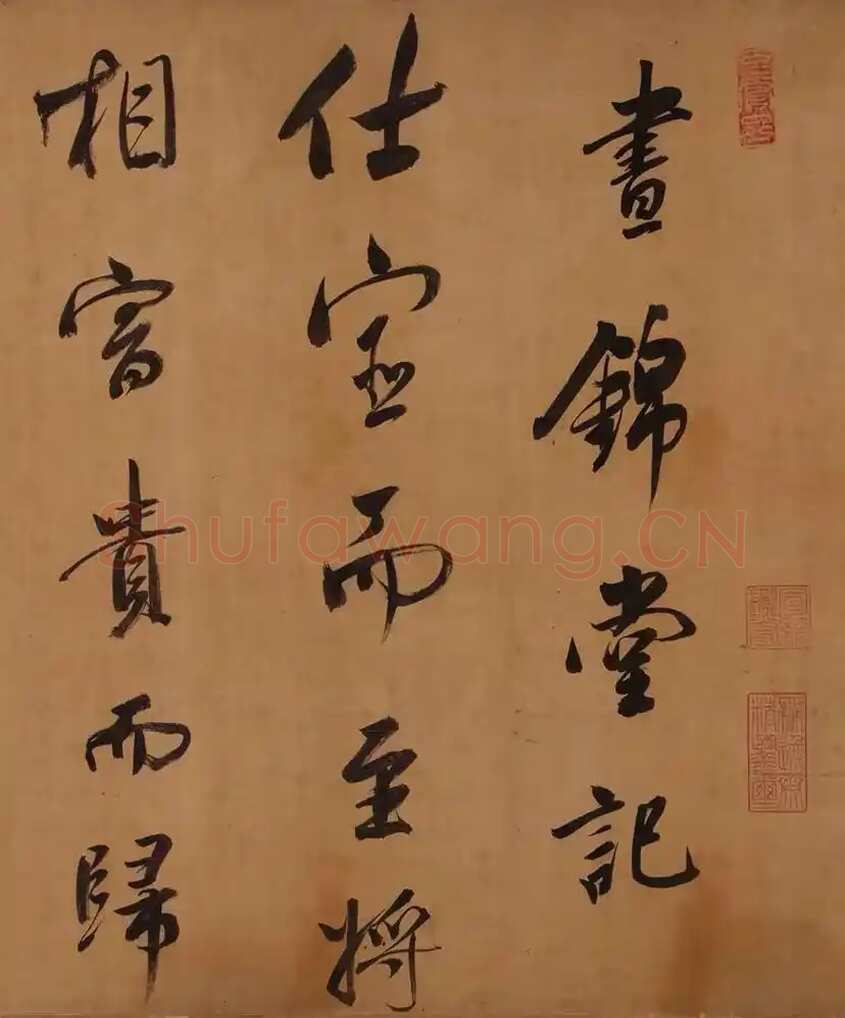 玄賞齋
晝錦堂記
仕宦而至將
相富貴而歸
Shufawang.CN